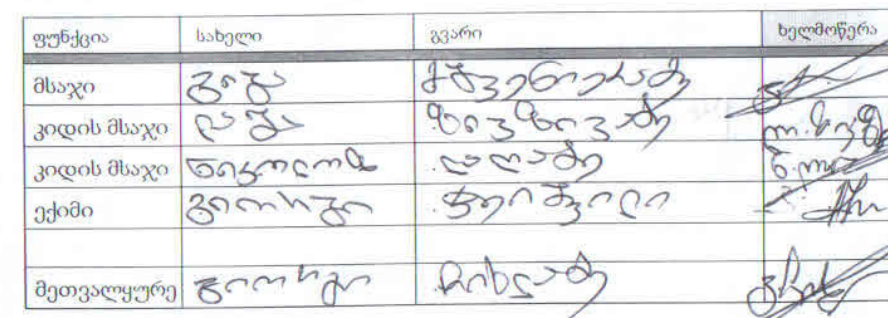 ფუნქცია სახელი გვარი ხელმოწერა
მსაჯი გიგა მშვენიერაძე
კიდის მსაჯი ლაშა ზივზივაძე
კიდის მსაჯი ნიკოლოზ ლალაძე
ექიმი გიორგი
მეთვალყურე გიორგი ჩიხლაძე